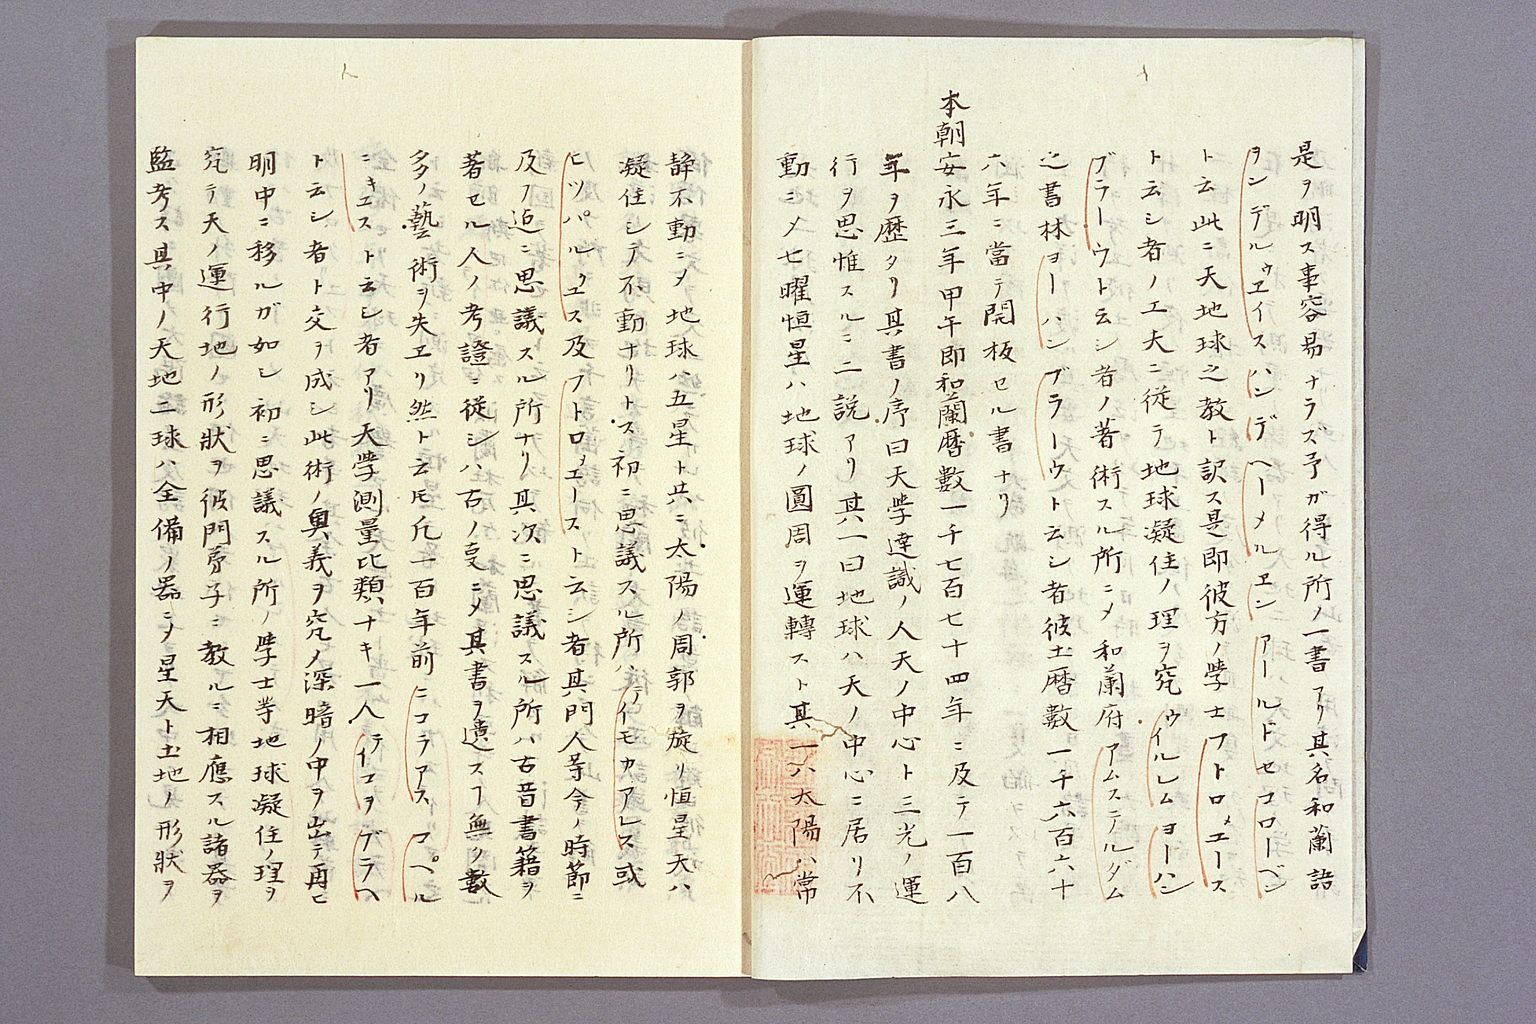 是ヲ明ス事容易ナラズ予ガ得ル所ノ一書アリ其名和蘭語
ヲンデルウヱイスハンデヘーメルエンアールドセコローペン
ト云此ニ天地球之教ト訳ス是即彼方ノ學士フトロメエース
ト云シ者ノ工夫ニ従テ地球凝住ノ理ヲ究ウイルレムヨーハン
ブラーウト云シ者ノ著術スル所ニメ和蘭府アムステルダム
之書林ヨーハンブラーウト云シ者彼土暦數一千六百六十
六年ニ當テ開板セル書ナリ
本朝安永三年甲午即和蘭暦數一千七百七十四年ニ及テ一百八
年ヲ歴タリ其書ノ序曰天學達識ノ人天ノ中心ト三光ノ運
行ヲ思惟スルニ二説アリ其一曰地球ハ天ノ中心ニ居リ不
動ニメ七曜恒星ハ地球ノ圓周ヲ運轉スト其一ハ太陽ハ常
静不動ニメ地球ハ五星ト共ニ太陽ノ周郭ヲ旋リ恒星天ハ
凝住シテ不動ナリトス初ニ思議スル所ハテイモカアレス或
ヒツパルクエス及フトロメエーストト云シ者其門人等今ノ時節ニ
及フ迫ニ思議スル所ナリ其次ニ思議スル所ハ古昔書籍ヲ
著セル人ノ考證ニ従シハ古ノ叓ニメ其書ヲ遺スヿ無ク數
多ノ藝術ヲ失エリ然ト云氐凡二百年前ニコラアスコペル
ニキエスト云シ者アリ天學測量比類ナキ一人テイコヲブラヘ
ト云シ者ト交ヲ成シ此術ノ奥義ヲ究ノ深暗ノ中ヲ出テ再ヒ
明中ニ移ルガ如シ初ニ思議スル所ノ學士等地球凝住ノ理ヲ
究テ天ノ運行地ノ形状ヲ彼門弟子ニ教ルニ相應スル諸器ヲ
監考ス其中ノ天地二球ハ全備ノ器ニメ星天ト土地ノ形状ヲ